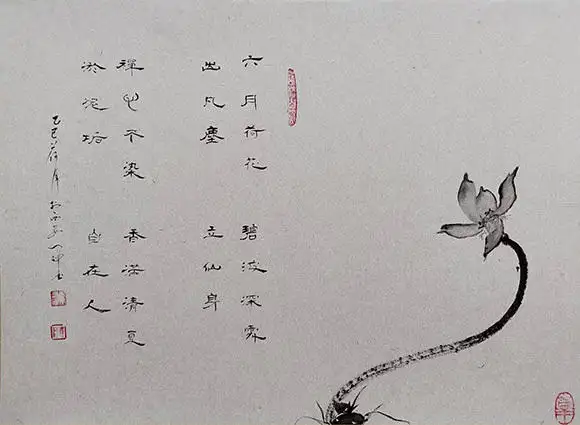 六月荷花
出凡塵
碧波深處
立仙身
禪心不染
淤泥垢
香滿清夏
自在人
乙巳荷月於西安